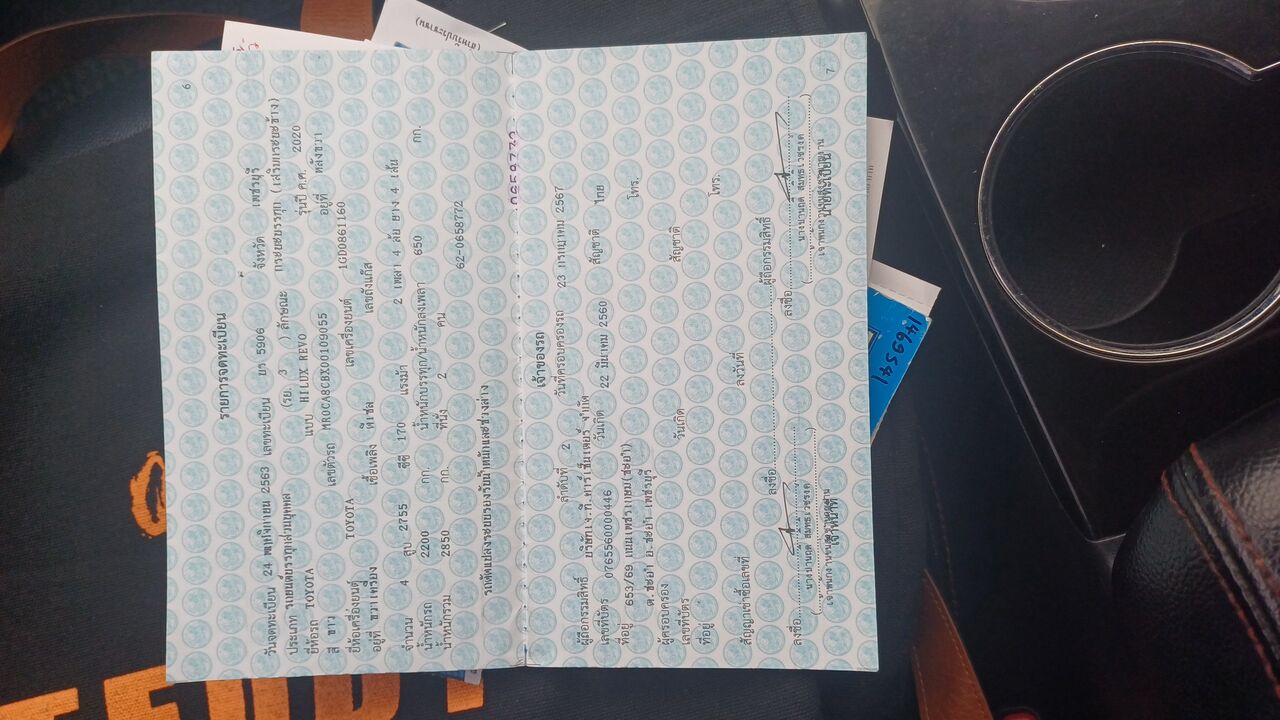 6
รายการจดทะเบียน
วันจดทะเบียน 24 พฤศจิกายน 2563 เลขทะเบียน บร 5906 จังหวัด เพชรบุรี
ประเภท รถยนต์บรรทุกส่วนบุคคล (รย. 3 ) ลักษณะ กระบะบรรทุก (เสริมกระบะข้าง)
ยี่ห้อรถ TOYOTA แบบ HILUX REVO รุ่นปี ค.ศ. 2020
สี ขาว เลขตัวรถ MR0CA8CBX00109055 อยู่ที่ หลังขวา
ยี่ห้อเครื่องยนต์ TOYOTA เลขเครื่องยนต์ 1GD0861160
อยู่ที่ ขวาเครื่อง เชื้อเพลิง ดีเซล เลขถังแก๊ส
จำนวน 4 สูบ 2755 ซีซี 170 แรงม้า 2 เพลา 4 ล้อ ยาง 4 เส้น
น้ำหนักรถ 2200 กก. น้ำหนักบรรทุก/น้ำหนักลงเพลา 650 กก.
น้ำหนักรวม 2850 กก. ที่นั่ง 2 คน 62-0658772
รถดัดแปลงระบบรองรับน้ำหนักและช่วงล่าง
0658772
7
เจ้าของรถ
ลำดับที่ 2 วันที่ครอบครองรถ 23 กรกฎาคม 2567
ผู้ถือกรรมสิทธิ์ บริษัท เจ.ที. คาร์ เซ็นเตอร์ จำกัด
เลขที่บัตร 0765560000446 วันเกิด 22 มีนาคม 2560 สัญชาติ ไทย
ที่อยู่ 653/69 ถนนเพชรเกษม(ชะอำ) โทร.
ต.ชะอำ อ.ชะอำ เพชรบุรี
ผู้ครอบครอง
เลขที่บัตร วันเกิด สัญชาติ
ที่อยู่ โทร.
สัญญาเช่าซื้อเลขที่ ลงวันที่
ลงชื่อ ผู้ถือกรรมสิทธิ์
ลงชื่อ ลงชื่อ
เจ้าหน้าที่ นายทะเบียน
1469541